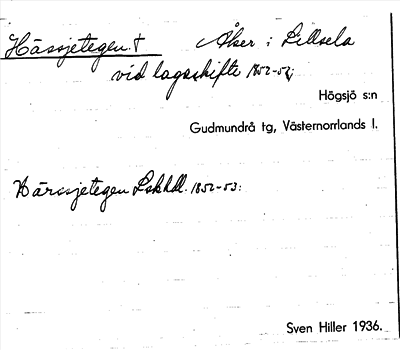 Hässjetegen. † Åker i Lillsela
vid lagaskifte 1852-53;
Högsjö s:n
Gudmundrå tg, Västernorrlands l.
Härssjetegen Lskhdl. 1852-53:
Sven Hiller 1936.